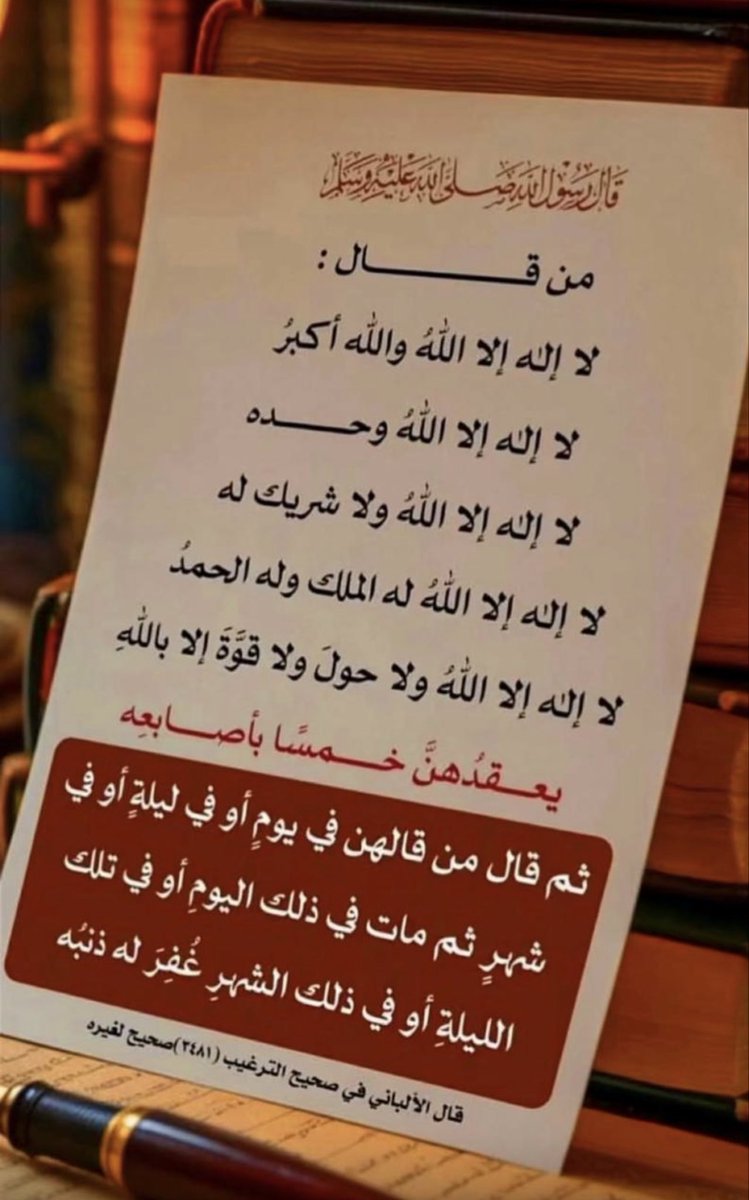 قال رسول الله صلى الله عليه وسلم
من قـــــــــال :
لا إلٰه إلا اللهُ والله أكبرُ
لا إلٰه إلا اللهُ وحـــــده
لا إلٰه إلا اللهُ ولا شريك له
لا إلٰه إلا اللهُ له الملك وله الحمدُ
لا إلٰه إلا اللهُ ولا حولَ ولا قوَّةَ إلا باللهِ
يعـقدُهنَّ خـمسًا بأصـــابعِه
ثم قال من قالهن في يومٍ أو في ليلةٍ أو في
شهرٍ ثم مات في ذلك اليومِ أو في تلك
الليلةِ أو في ذلك الشهرِ غُفِرَ له ذنبُه
قال الألباني في صحيح الترغيب (٣٤٨١)صحيح لغيره